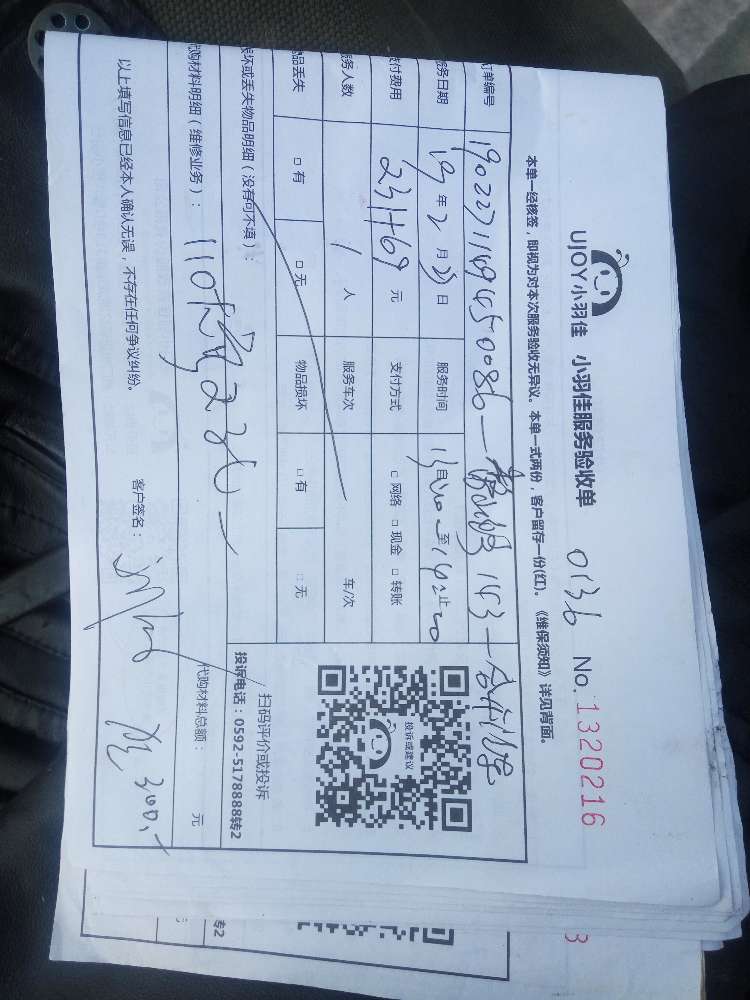 UJOY小羽佳 小羽佳服务验收单 0136 No.1320216
本单一经核签，即视为对本次服务验收无异议。本单一式两份，客户留存一份(红)。《维保须知》详见背面。
订单编号
服务日期 19年2月23日 服务时间 自 至 止
支付费用 231+69 元 支付方式 □ 网络 □ 现金 □ 转账
服务人数 1 人 服务车次 车/次
物品丢失 □ 有 □ 无 物品损坏 □ 有 □ 无
损坏或丢失物品明细（没有可不填）：
投诉或建议
扫码评价或投诉
投诉电话：0592-5178888转2
代购材料明细（维修业务）：110 代购材料总额： 元
以上填写信息已经本人确认无误，不存在任何争议纠纷。 客户签名： 300.-
转2
3